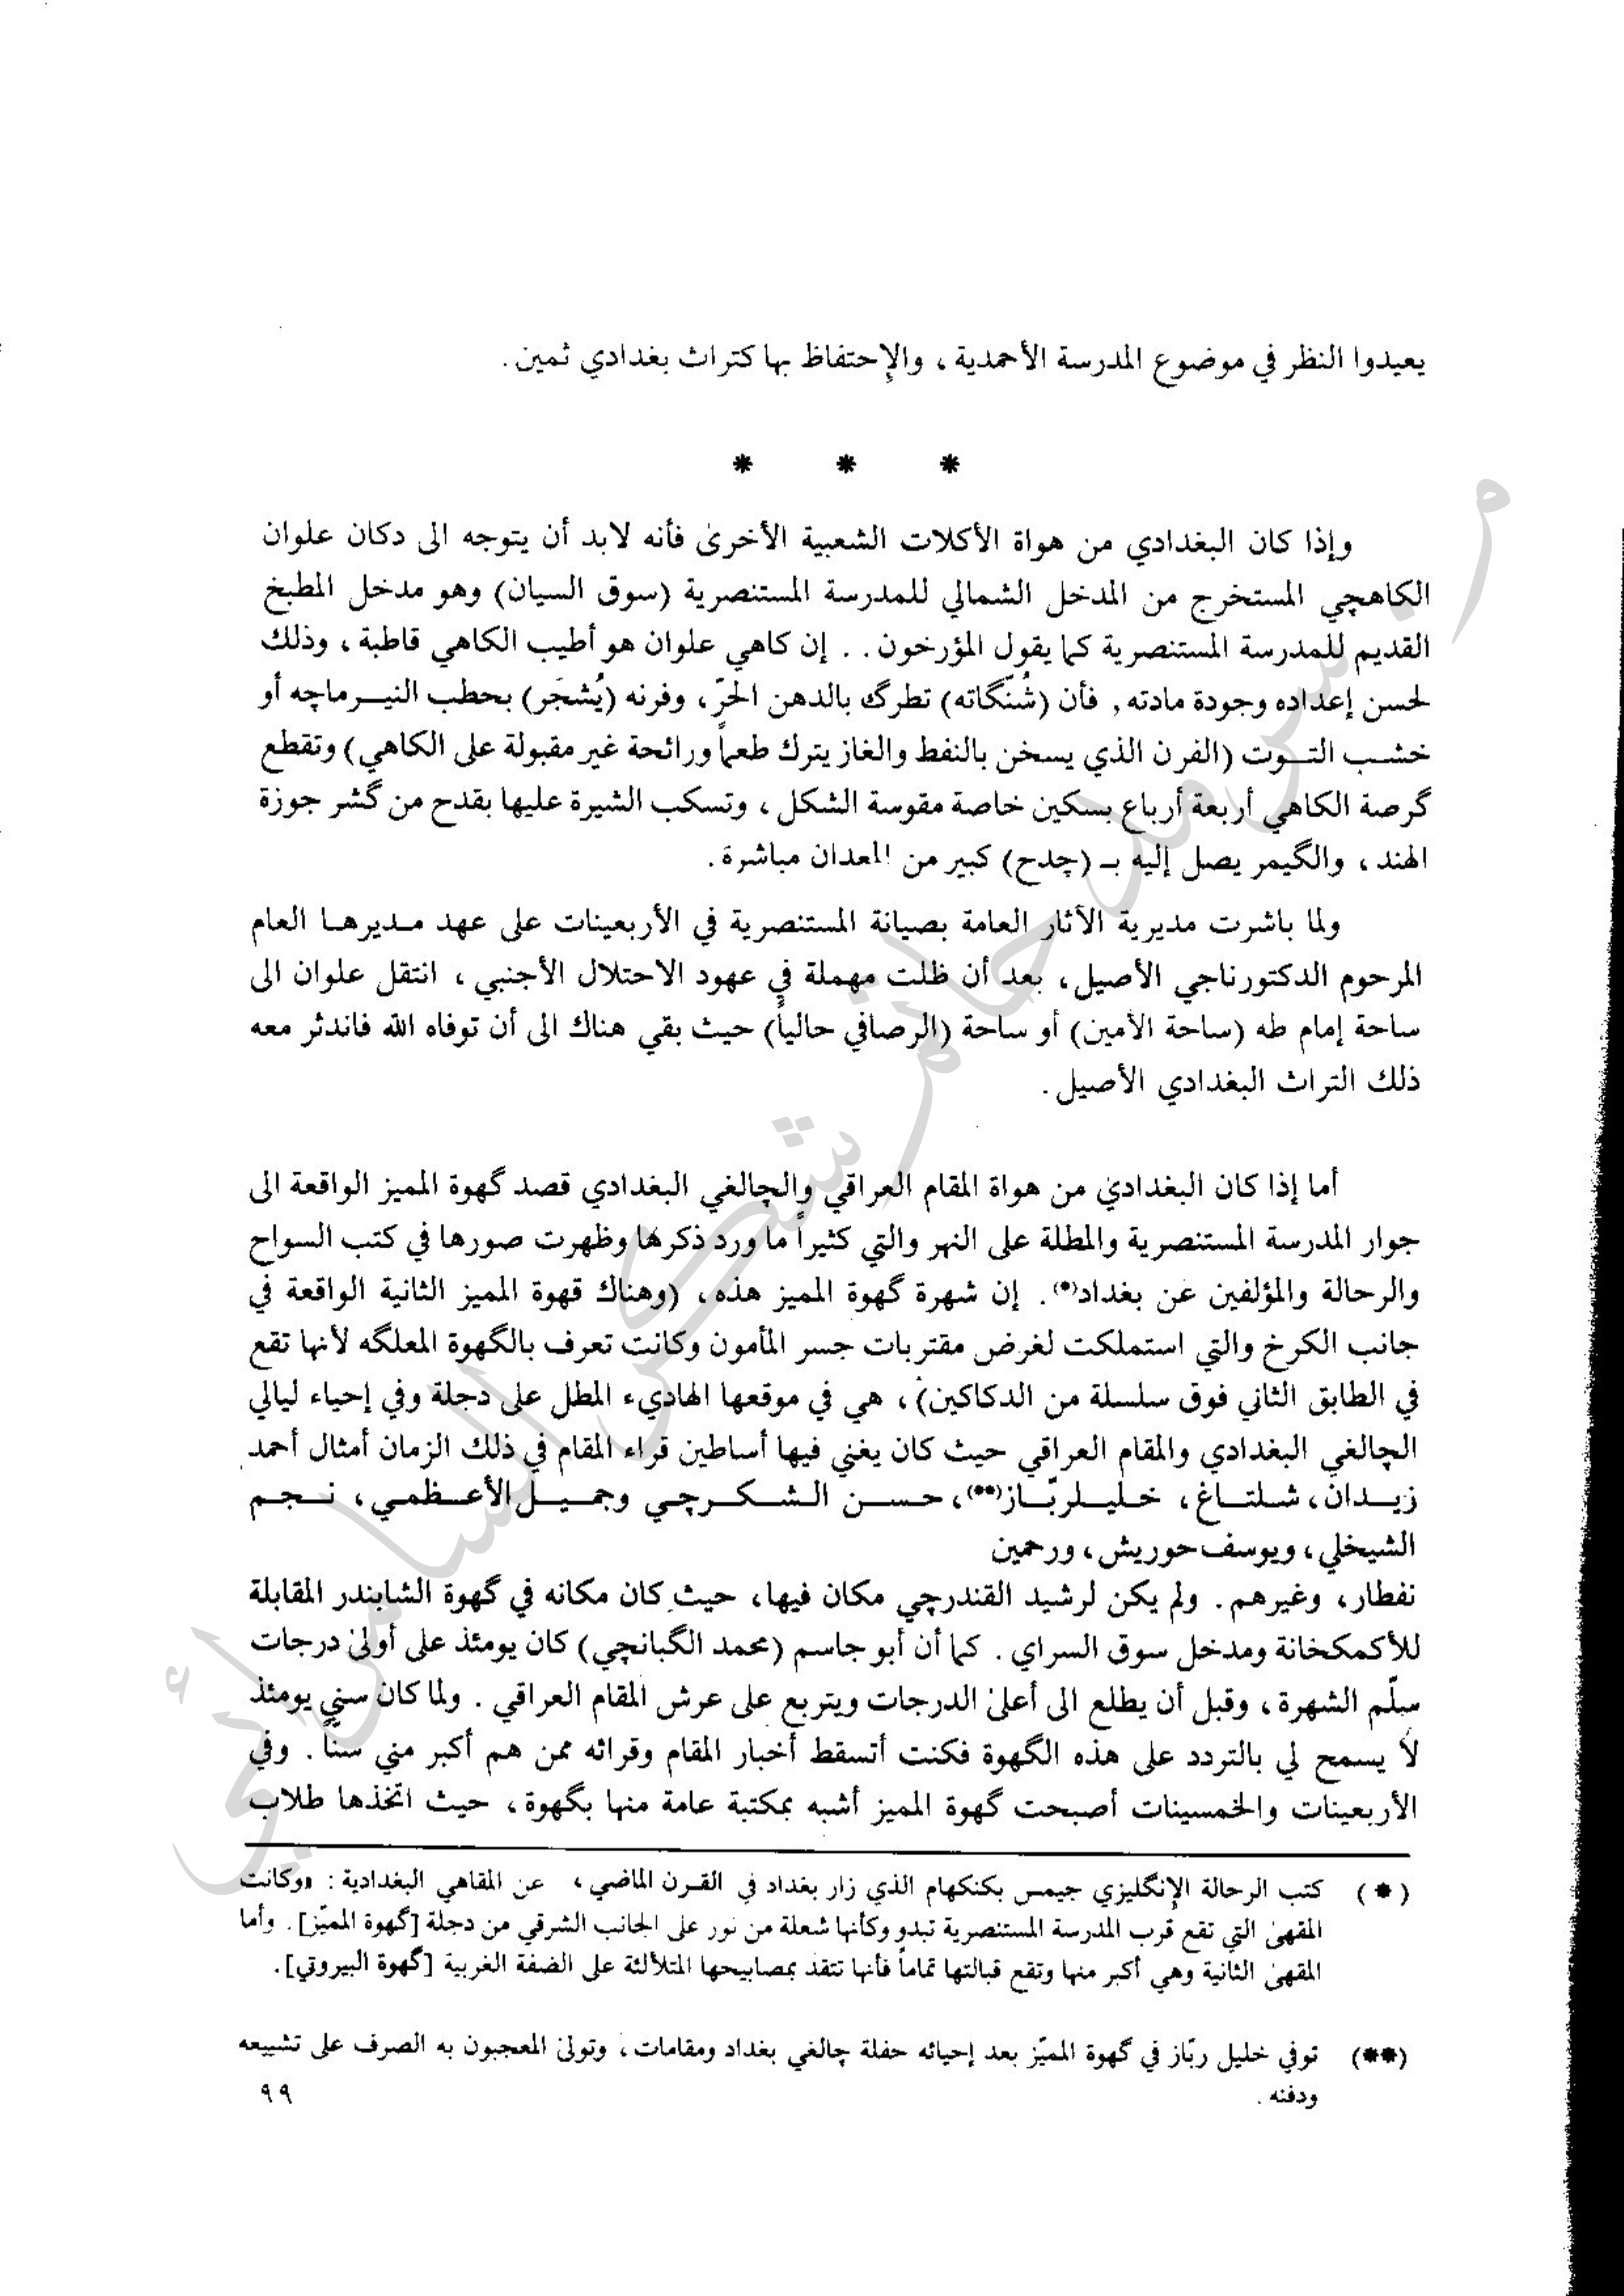 يعيدوا النظر في موضوع المدرسة الأحمدية ، والإحتفاظ بها كتراث بغدادي ثمين .
* * *
وإذا كان البغدادي من هواة الأكلات الشعبية الأخرىٰ فأنه لابد أن يتوجه الى دكان علوان
الكاهچي المستخرج من المدخل الشمالي للمدرسة المستنصرية (سوق السيان) وهو مدخل المطبخ
القديم للمدرسة المستنصرية كما يقول المؤرخون . . إن كاهي علوان هو أطيب الكاهي قاطبة ، وذلك
لحسن إعداده وجودة مادته , فأن (شُنّگاته) تطرگ بالدهن الحرّ ، وفرنه (يُشجَر) بحطب النيـرماچه أو
خشـب التـوت (الفرن الذي يسخن بالنفط والغاز يترك طعماً ورائحة غير مقبولة على الكاهي) وتقطع
گرصة الكاهي أربعة أرباع بسكين خاصة مقوسة الشكل ، وتسكب الشيرة عليها بقدح من گشر جوزة
الهند ، والگيمر يصل إليه بـ (چدح) كبير من المعدان مباشرة .
ولما باشرت مديرية الآثار العامة بصيانة المستنصرية في الأربعينات على عهد مـديرهـا العام
المرحوم الدكتورناجي الأصيل ، بعد أن ظلت مهملة في عهود الاحتلال الأجنبي ، انتقل علوان الى
ساحة إمام طه (ساحة الأمين) أو ساحة (الرصافي حالياً) حيث بقي هناك الى أن توفاه الله فاندثر معه
ذلك التراث البغدادي الأصيل .
أما إذا كان البغدادي من هواة المقام العراقي والچالغي البغدادي قصد گهوة المميز الواقعة الى
جوار المدرسة المستنصرية والمطلة على النهر والتي كثيراً ما ورد ذكرها وظهرت صورها في كتب السواح
والرحالة والمؤلفين عن بغداد(*) . إن شهرة گهوة المميز هذه ، (وهناك قهوة المميز الثانية الواقعة في
جانب الكرخ والتي استملكت لغرض مقتربات جسر المأمون وكانت تعرف بالگهوة المعلگه لأنها تقع
في الطابق الثاني فوق سلسلة من الدكاكين) ، هي في موقعها الهاديء المطل على دجلة وفي إحياء ليالي
الچالغي البغدادي والمقام العراقي حيث كان يغني فيها أساطين قراء المقام في ذلك الزمان أمثال أحمد
زيـدان ، شـلتـاغ ، خـليـلربّـاز(**) ، حـسـن الـشـكـرچـي وجمـيـل الأعـظمـي ، نـجـم
الشيخلي ، ويوسف حوريش ، ورحمين
نفطار ، وغيرهم . ولم يكن لرشيد القندرچي مكان فيها ، حيث كان مكانه في گهوة الشابندر المقابلة
للأكمكخانة ومدخل سوق السراي . كما أن أبو جاسم (محمد الگبانچي) كان يومئذ على أولىٰ درجات
سلّم الشهرة ، وقبل أن يطلع الى أعلىٰ الدرجات ويتربع على عرش المقام العراقي . ولما كان سني يومئذ
لا يسمح لي بالتردد على هذه الگهوة فكنت أتسقط أخبار المقام وقرائه ممن هم أكبر مني سناً . وفي
الأربعينات والخمسينات أصبحت گهوة المميز أشبه بمكتبة عامة منها بگهوة ، حيث اتخذها طلاب
(*) كتب الرحالة الإنگليزي جيمس بكنكهام الذي زار بغداد في القـرن الماضي ، عن المقاهي البغدادية : «وكانت
المقهىٰ التي تقع قرب المدرسة المستنصرية تبدو وكأنها شعلة من نور على الجانب الشرقي من دجلة [گهوة المميّز] . وأما
المقهىٰ الثانية وهي أكبر منها وتقع قبالتها تماماً فأنها تتقد بمصابيحها المتلألئة على الضفة الغربية [گهوة البيروتي] .
(**) توفي خليل ربّاز في گهوة المميّز بعد إحيائه حفلة چالغي بغداد ومقامات ، وتولىٰ المعجبون به الصرف على تشييعه
ودفنه .
٩٩
سرمد حاتم شكر السامرائي